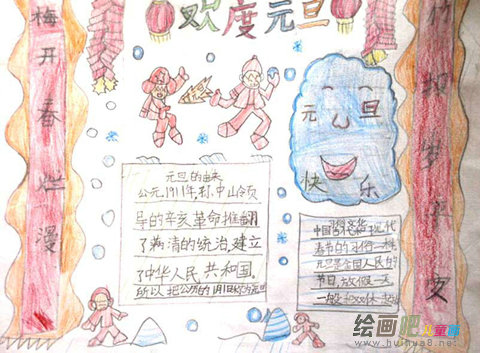 欢度元旦
梅开春烂漫
竹报岁平安
元旦
快乐
元旦的由来
公元1911年,孙中山领
导的辛亥革命推翻
了满清的统治,建立
了中华人民共和国。
所以把公历的1月1日称为元旦
现代
春节的习俗一样,
元旦是全国人民的
节日,放假一天
绘画吧
儿童画
www.huihua8.net